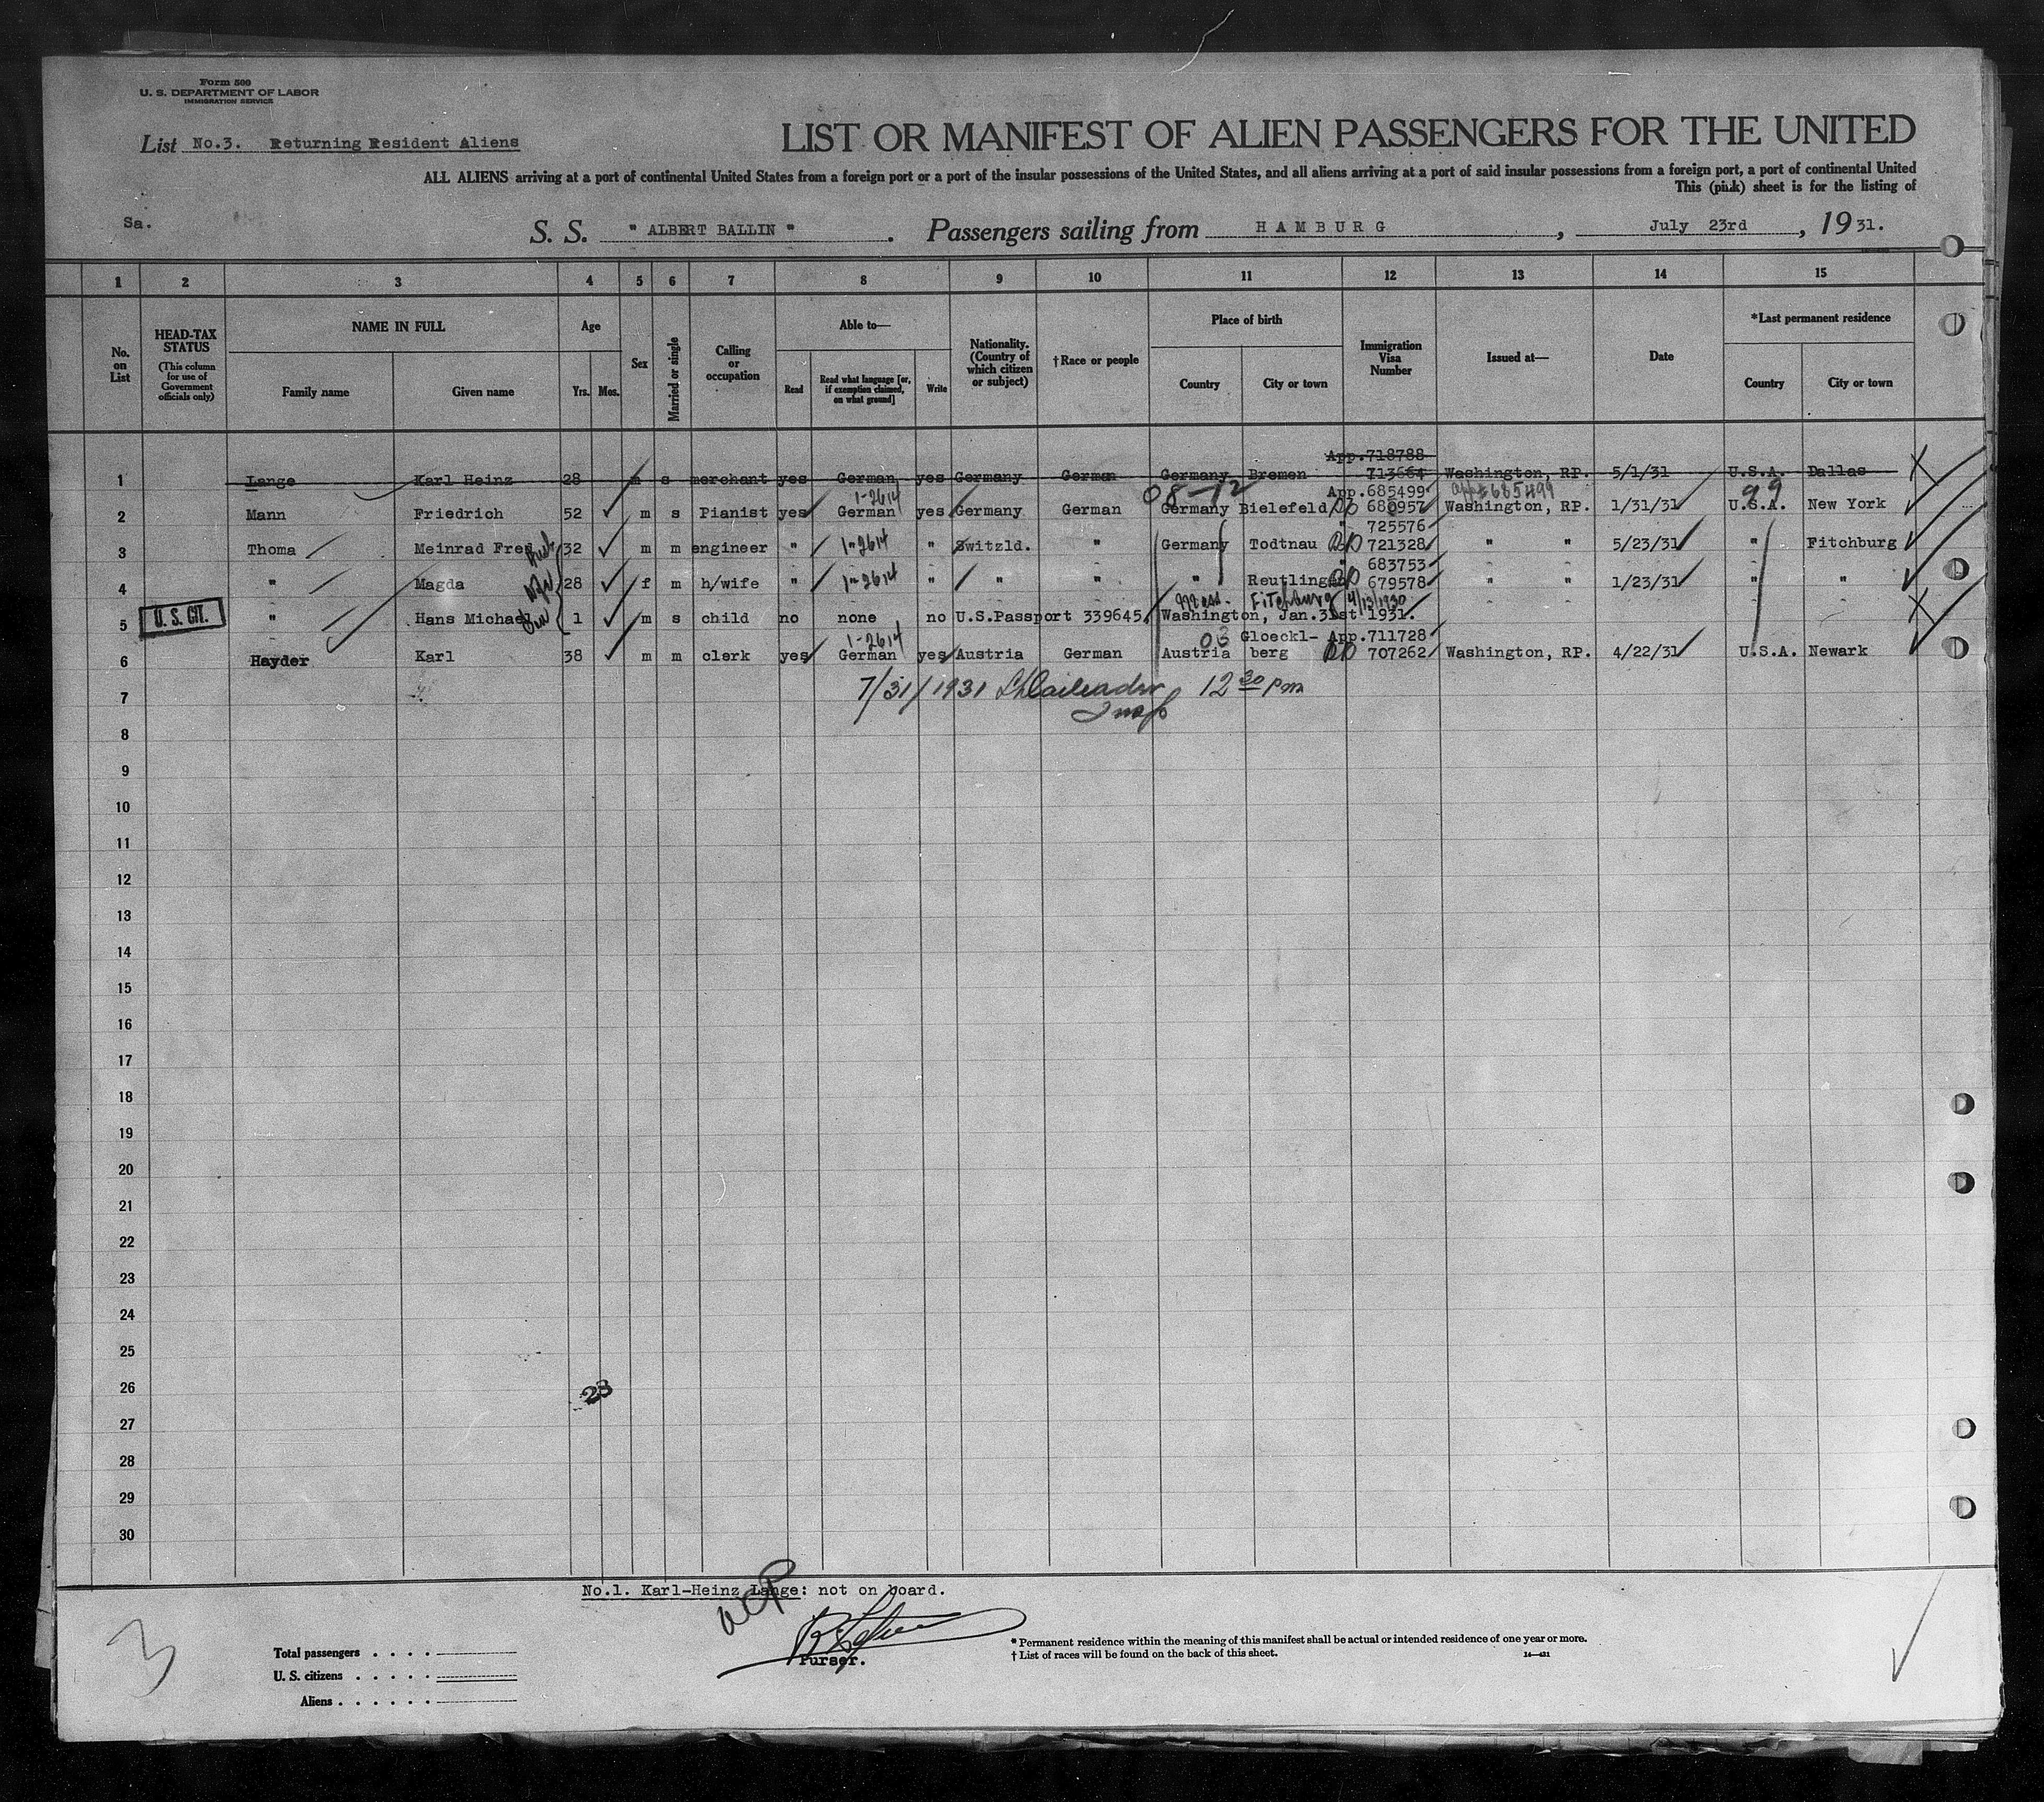 Form 500
U. S. DEPARTMENT OF LABOR
IMMIGRATION SERVICE
List No.3. Returning Resident Aliens
LIST OR MANIFEST OF ALIEN PASSENGERS FOR THE UNITED
ALL ALIENS arriving at a port of continental United States from a foreign port or a port of the insular possessions of the United States, and all aliens arriving at a port of said insular possessions from a foreign port, a port of continental United
This (pink) sheet is for the listing of
Sa.
S. S. " ALBERT BALLIN " . Passengers sailing from HAMBURG , July 23rd , 19 31.
1 2 3 4 5 6 7 8 9 10 11 12 13 14 15
No. on List
HEAD-TAX STATUS (This column for use of Government officials only)
NAME IN FULL
Family name Given name
Age
Yrs. Mos.
Sex
Married or single
Calling or occupation
Able to—
Read
Read what language [or, if exemption claimed, on what ground]
Write
Nationality. (Country of which citizen or subject)
† Race or people
Place of birth
Country City or town
Immigration Visa Number
Issued at—
Date
*Last permanent residence
Country City or town
App.718788
1 Lange Karl Heinz 28 m s merchant yes German yes Germany German Germany Bremen 713664 Washington, RP. 5/1/31 U.S.A. Dallas
1-2614 08-12 App.685499 app#685499 99
2 Mann Friedrich 52 m s Pianist yes German yes Germany German Germany Bielefeld 680957 Washington, RP. 1/31/31 U.S.A. New York
" 725576
3 Thoma Meinrad Fred 32 m m engineer " 1-2614 " Switzld. " Germany Todtnau 721328 " " 5/23/31 " Fitchburg
" 683753
4 " Magda 28 f m h/wife " 1-2614 " " " " Reutlingen 679578 " " 1/23/31 " "
Mass. Fitchburg 4/13/1930
U. S. CIT.
5 " Hans Michael 1 m s child no none no U.S.Passport 339645, Washington, Jan.31st 1931. " "
1-2614 03 Gloeckl- App.711728
6 Hayder Karl 38 m m clerk yes German yes Austria German Austria berg 707262 Washington, RP. 4/22/31 U.S.A. Newark
7 7/31/1931 12 30 pm
Insp
8
9
10
11
12
13
14
15
16
17
18
19
20
21
22
23
24
25
26 23
27
28
29
30
No.1. Karl-Heinz Lange: not on board.
3
Purser.
Total passengers . . . .
U. S. citizens . . . . .
Aliens . . . . . .
* Permanent residence within the meaning of this manifest shall be actual or intended residence of one year or more.
† List of races will be found on the back of this sheet.
14—421